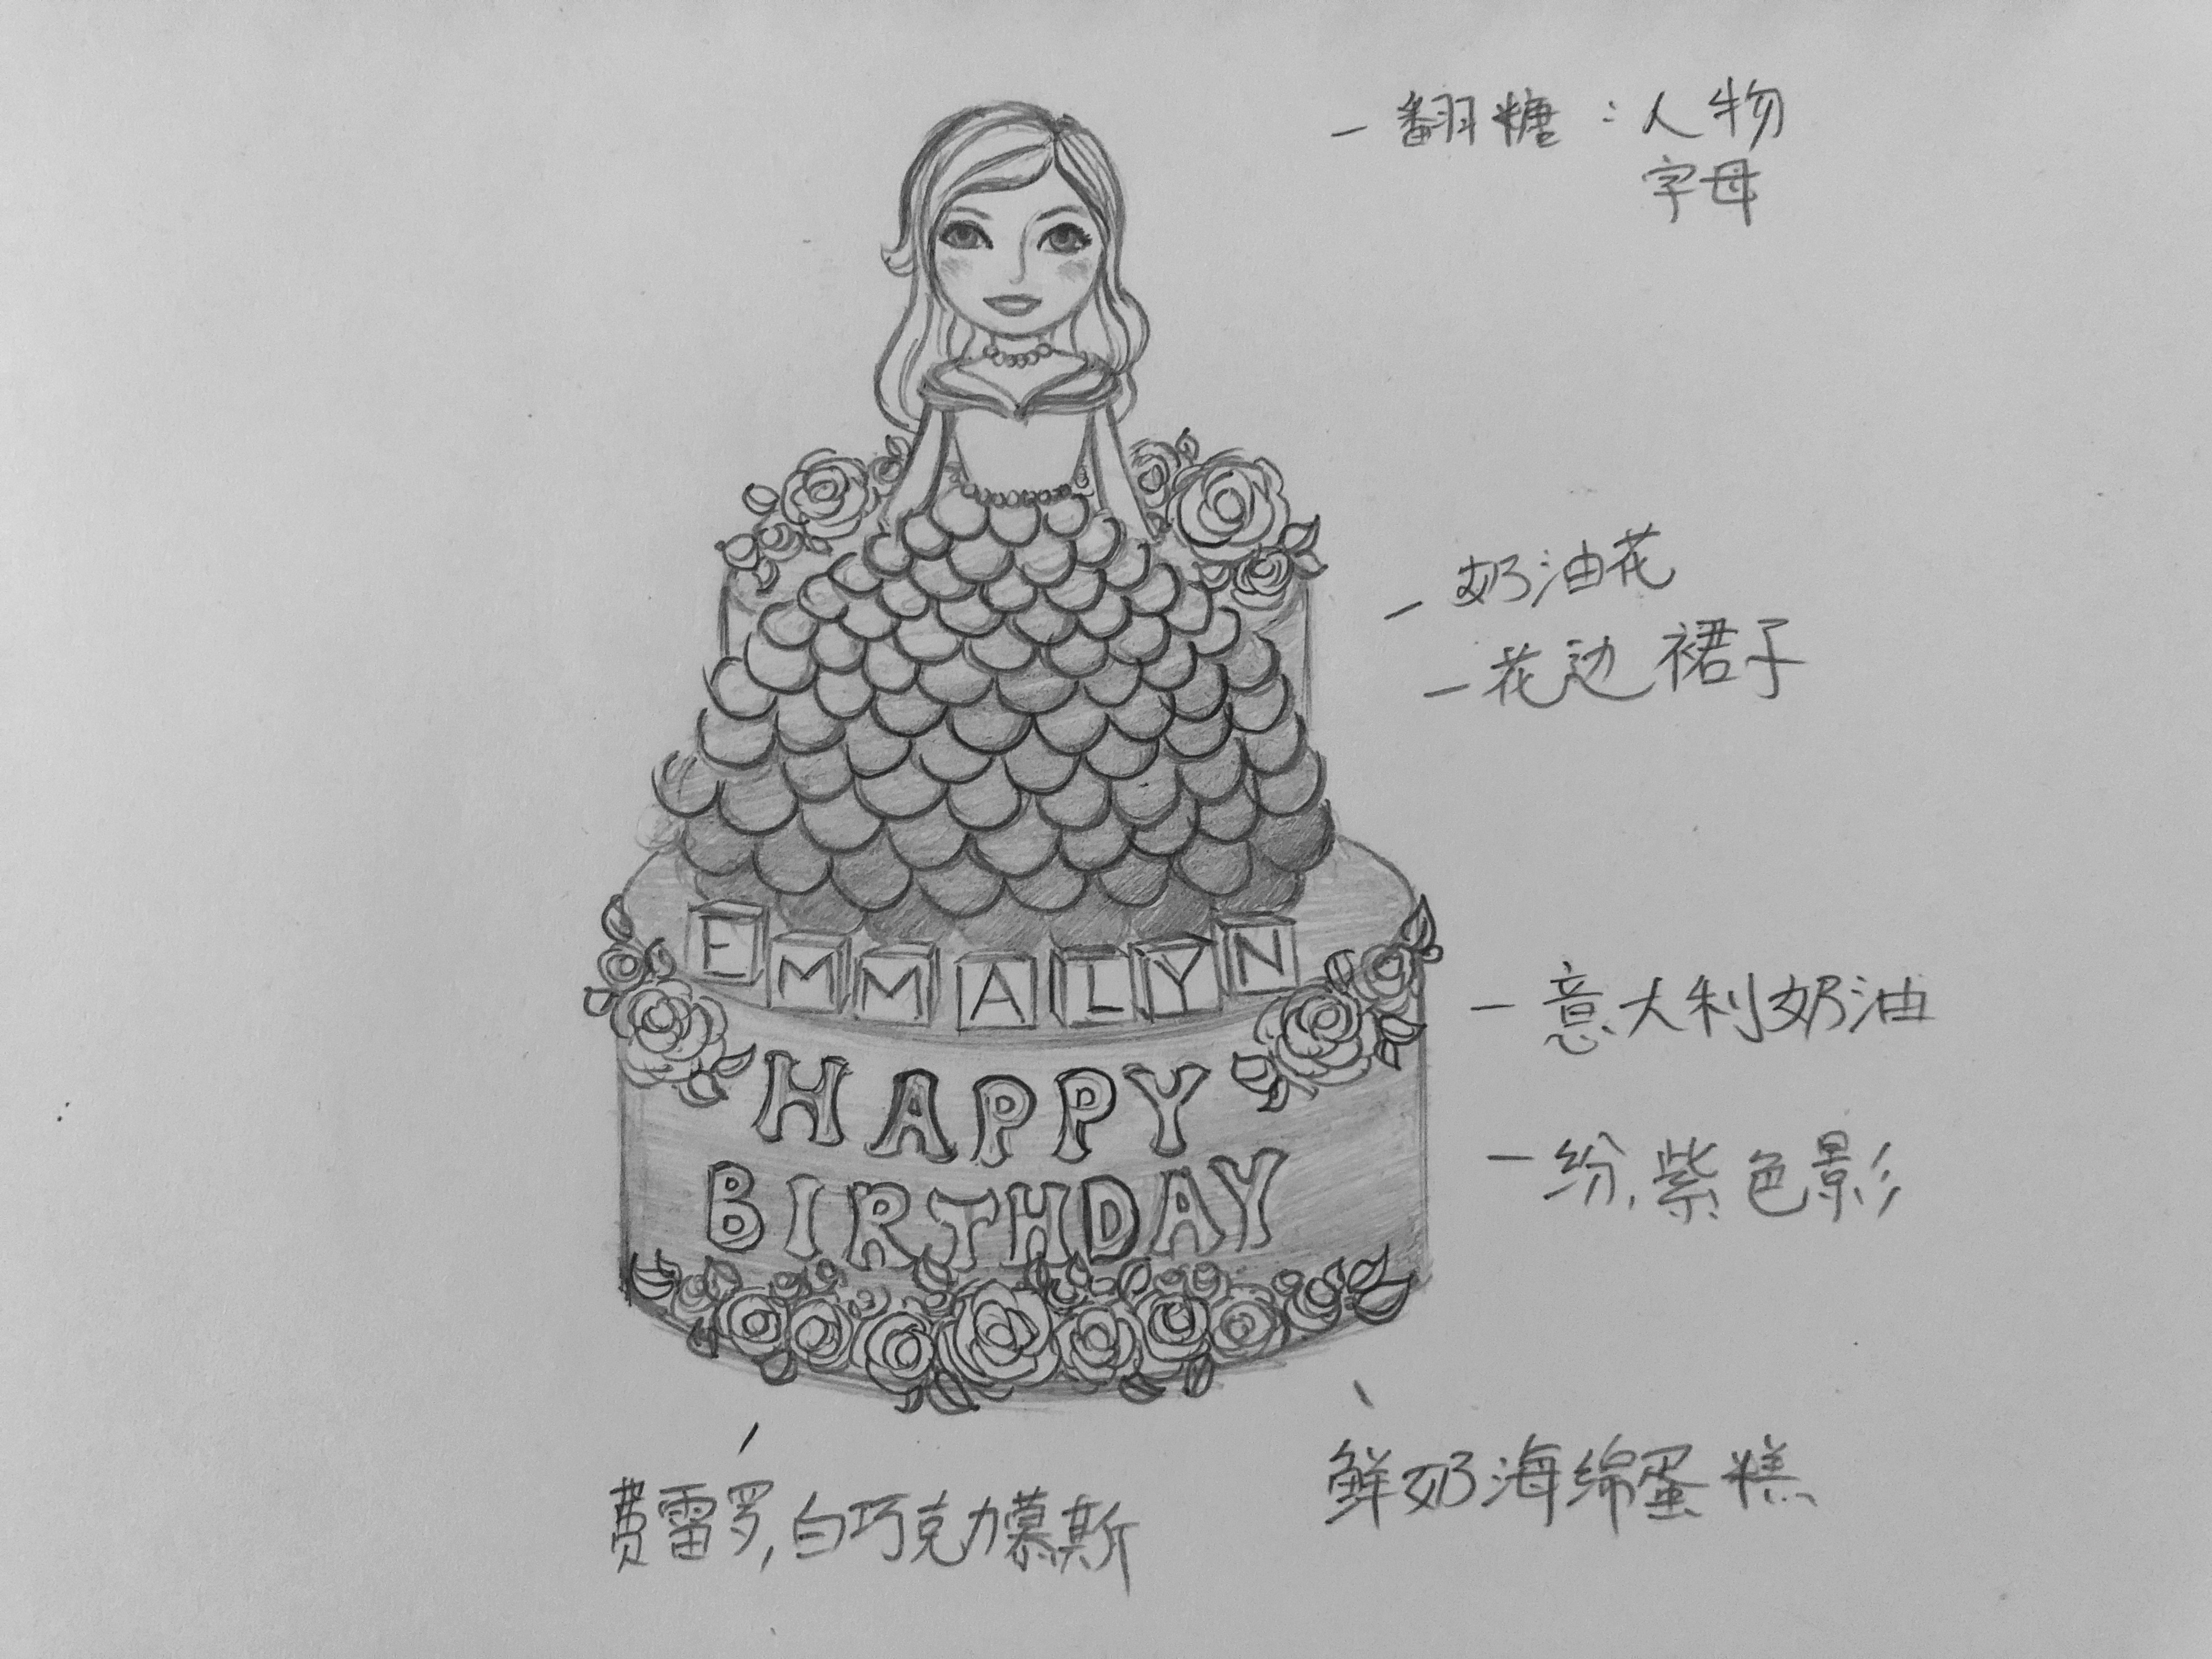 一翻糖:人物
字母
一奶油花
一花边裙子
一意大利奶油
一纷,紫色影
EMMALYN
HAPPY
BIRTHDAY
费雷罗,白巧克力慕斯
鲜奶海绵蛋糕